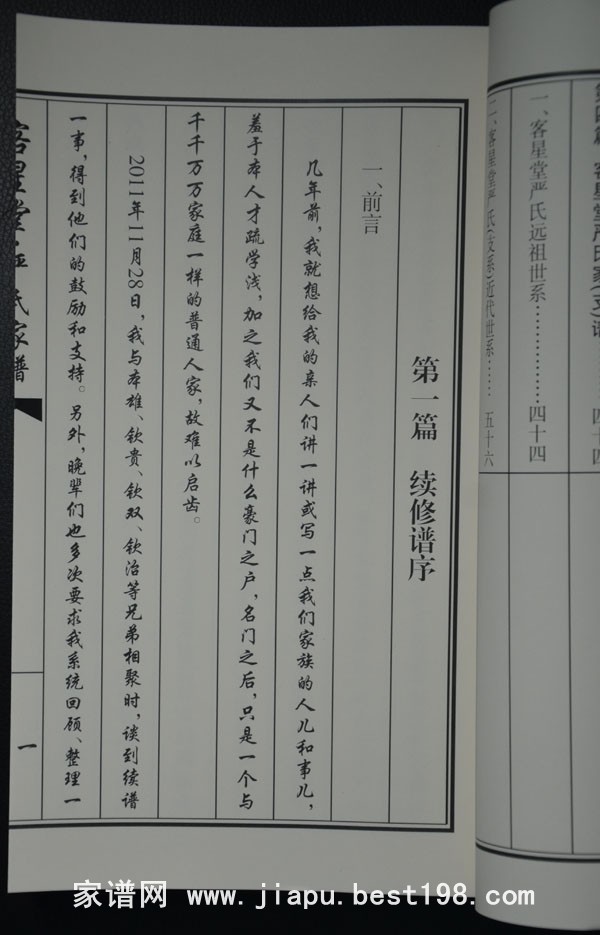 一、客星堂严氏远祖世系……………四十四
二、客星堂严氏(支系)近代世系……五十六
第一篇 续修谱序
一、前言
几年前,我就想给我的亲人们讲一讲或写一点我们家族的人儿和事儿,
羞于本人才疏学浅,加之我们又不是什么豪门之户,名门之后,只是一个与
千千万万家庭一样的普通人家,故难以启齿。
2011年11月28日,我与本雄、钦贵、钦双、钦治等兄弟相聚时,谈到续谱
一事,得到他们的鼓励和支持。另外,晚辈们也多次要求我系统回顾、整理一
客星堂严氏家谱
一
家谱网 www.jiapu.best198.com